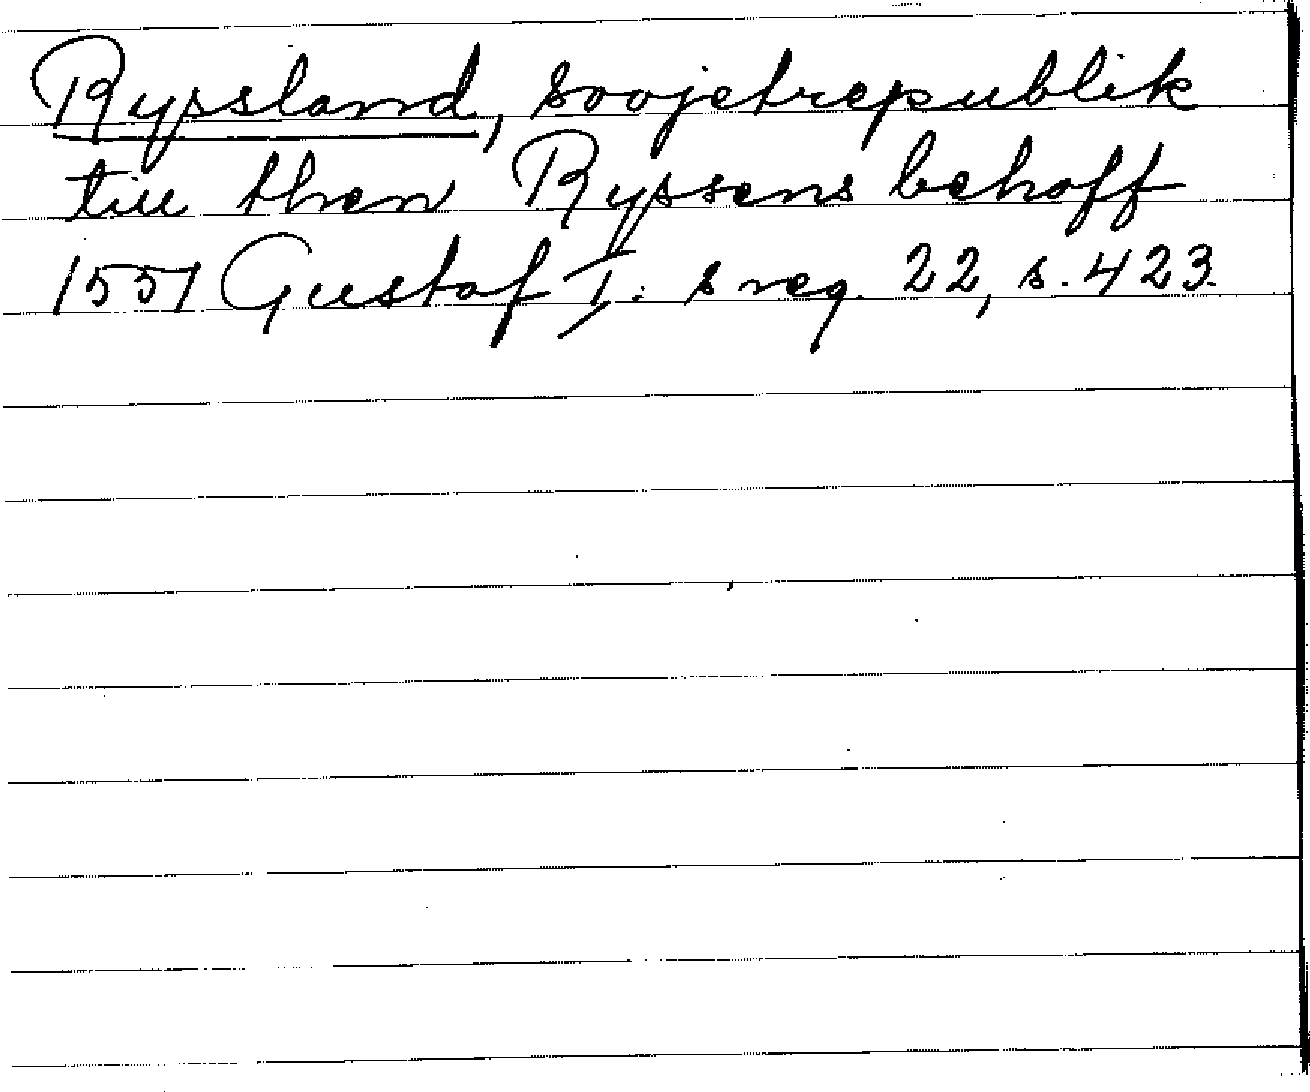 Ryssland, sovjetrepublik
till then Ryssens behoff
1551 Gustaf I: s reg. 22, s. 423.